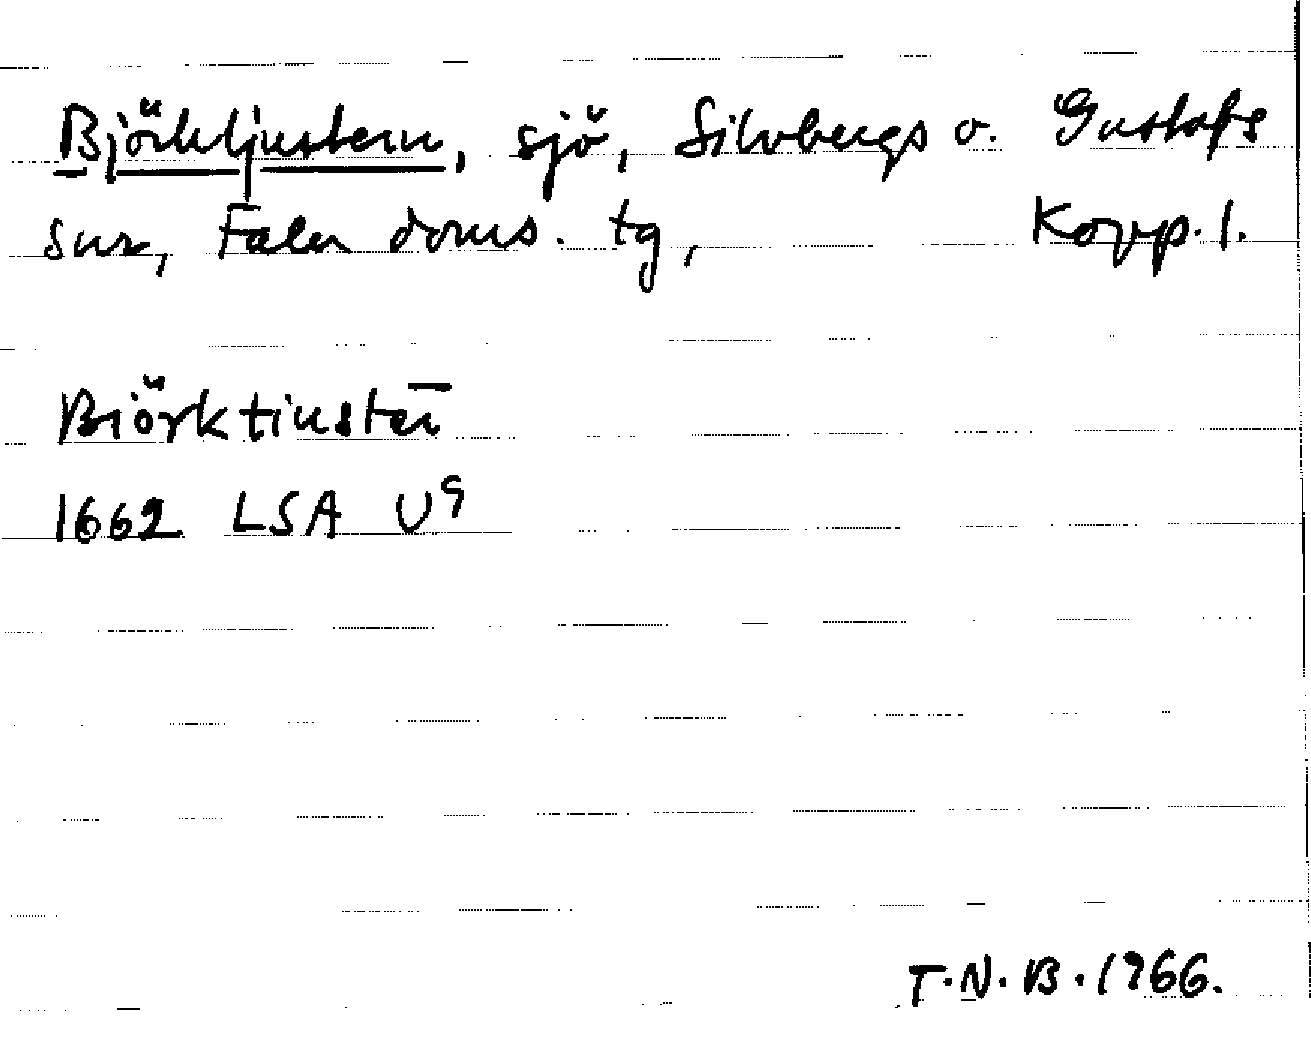 Björkljustern, sjö, Silvbergs o. Gustafs
snr, Falu doms. tg, Kopp. l.
Biörktiustēn
1662 LSA U9
T.N.B. 1966.